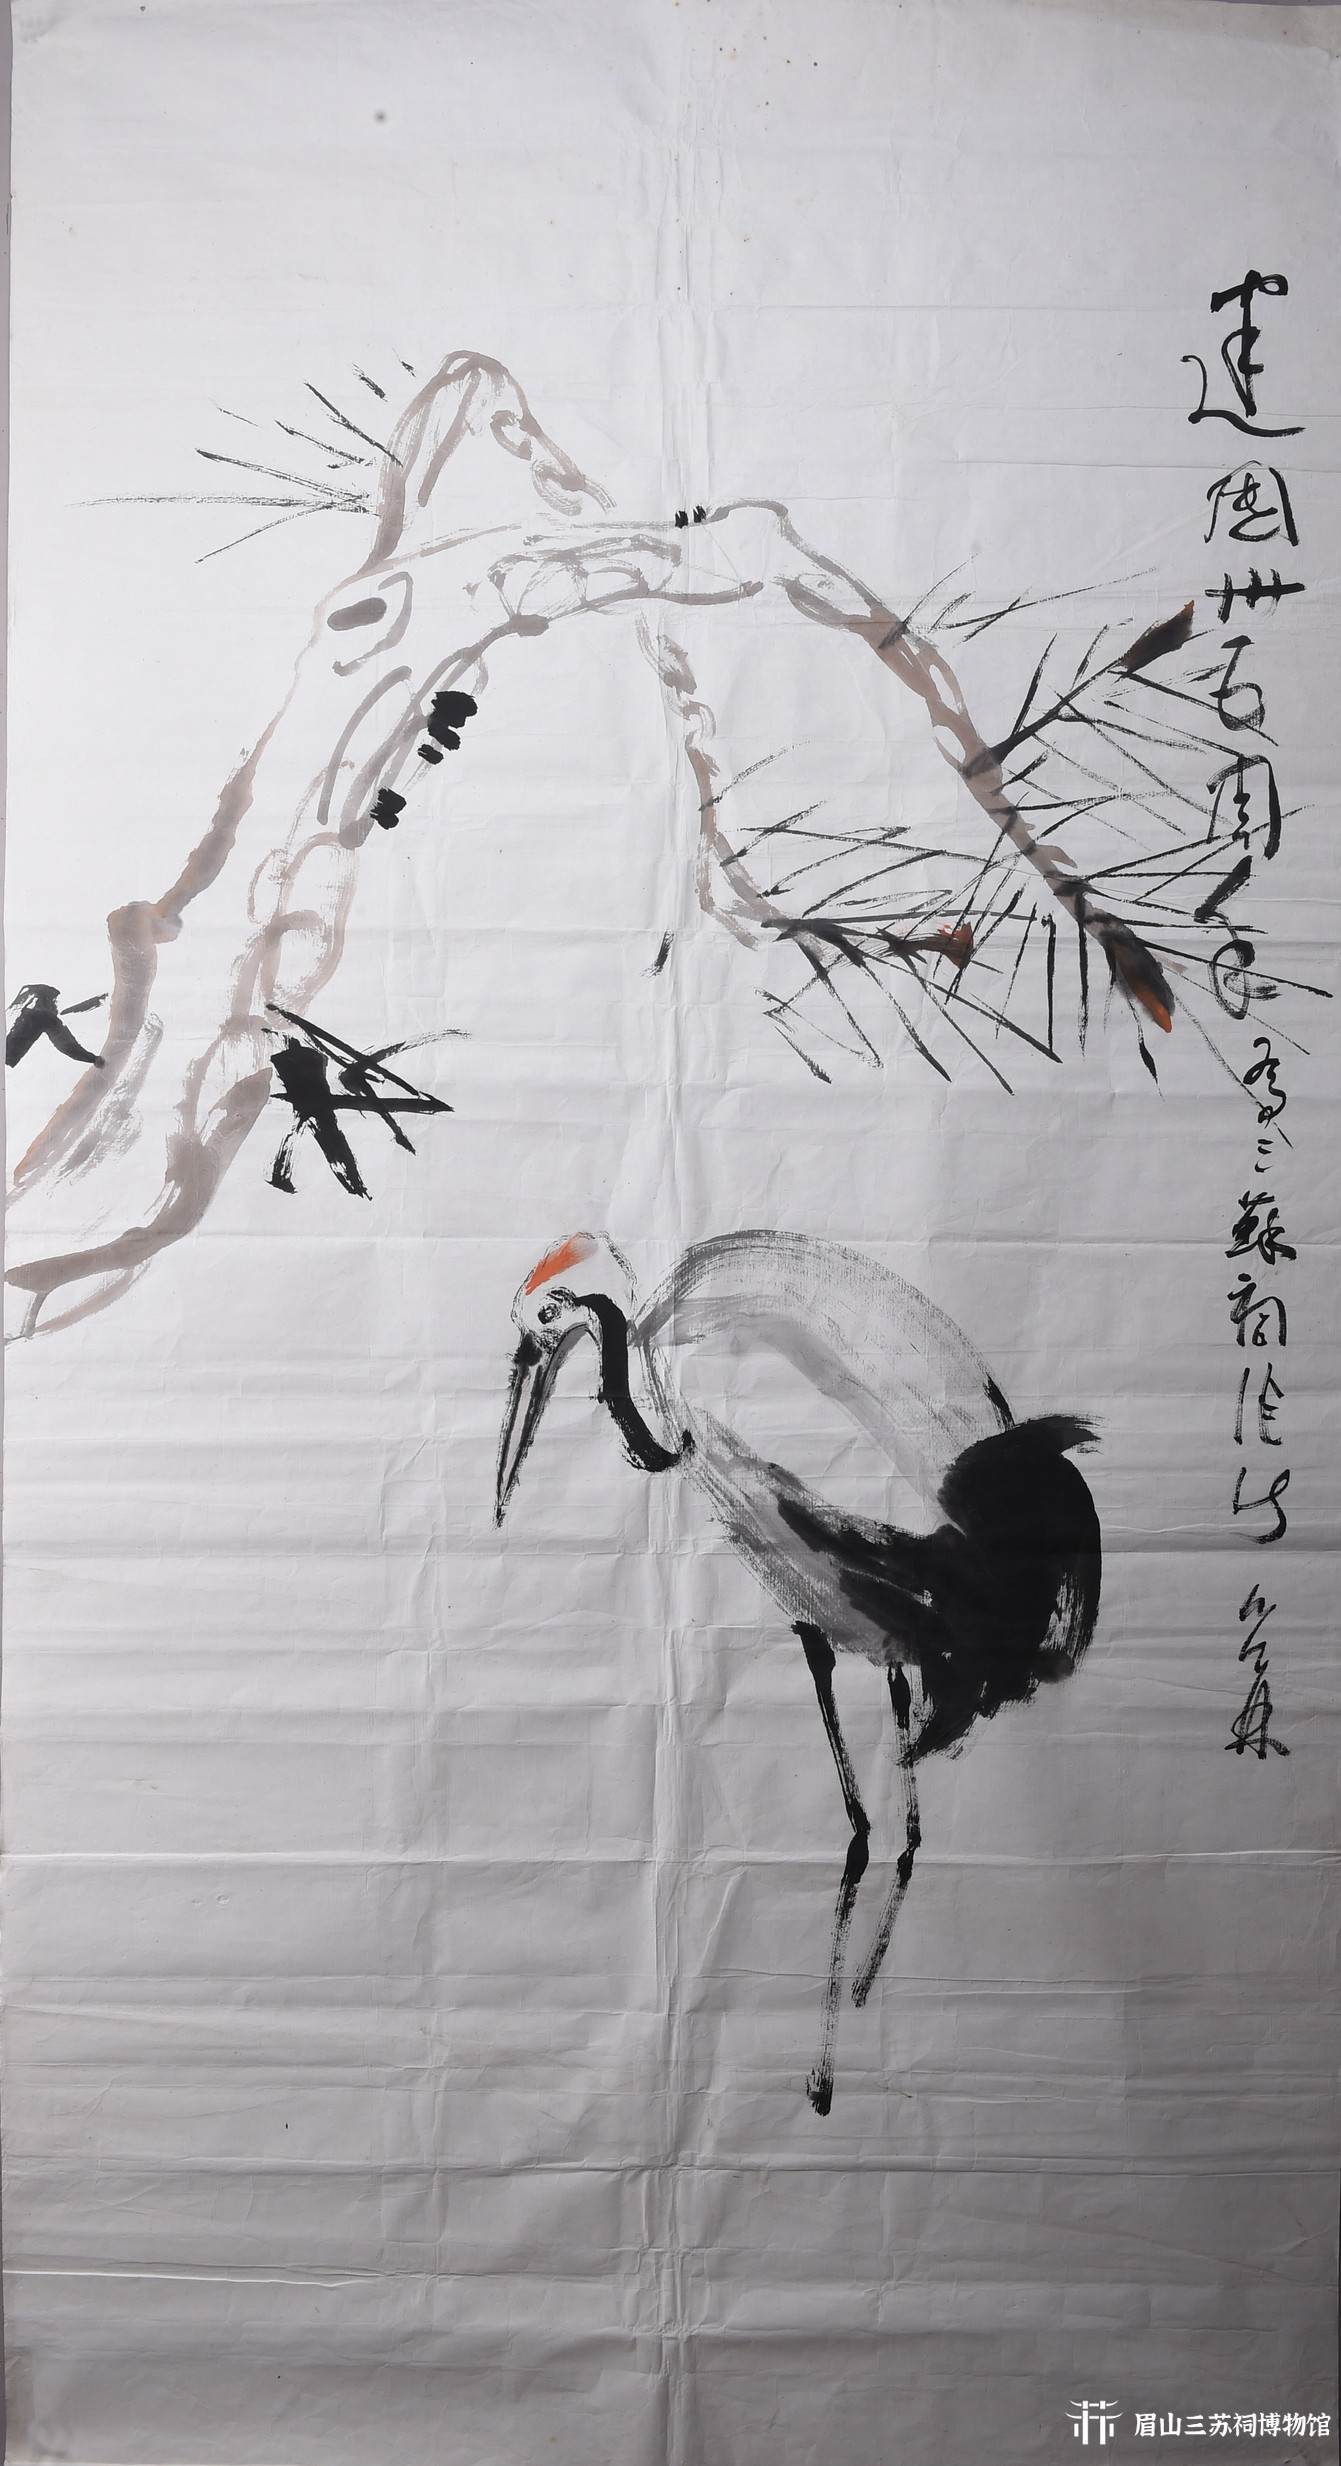 建国卅五周年
为三苏祠作
眉山三苏祠博物馆